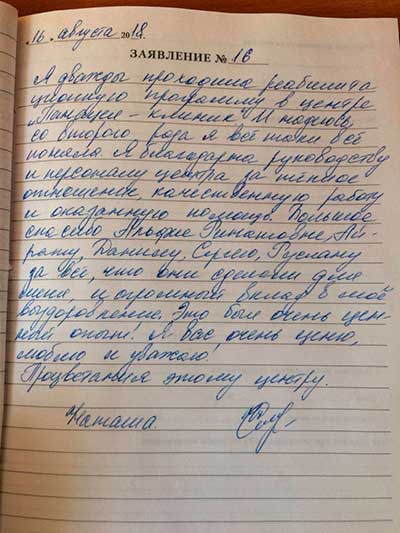 „16„ августа 2018г.
ЗАЯВЛЕНИЕ № 16
Я дважды проходила реабилита
ционную программу в центре
„Панацея - клиник". И надеюсь
со второго рада я всё таки всё
поняла. Я благодарна руководству
и персоналу центра за тёплое
отношение, качественную работу
и оказанную помощь. Большое
спасибо Альфие Ринатовне, Ай-
рату, Данилу, Сергею, Руслану
за всё, что они сделали для
меня, и огромный вклад в моё
выздоровление. Это был очень цен-
ный опыт! Я вас очень ценю,
люблю и уважаю!
Процветания этому центру.
Наташа.